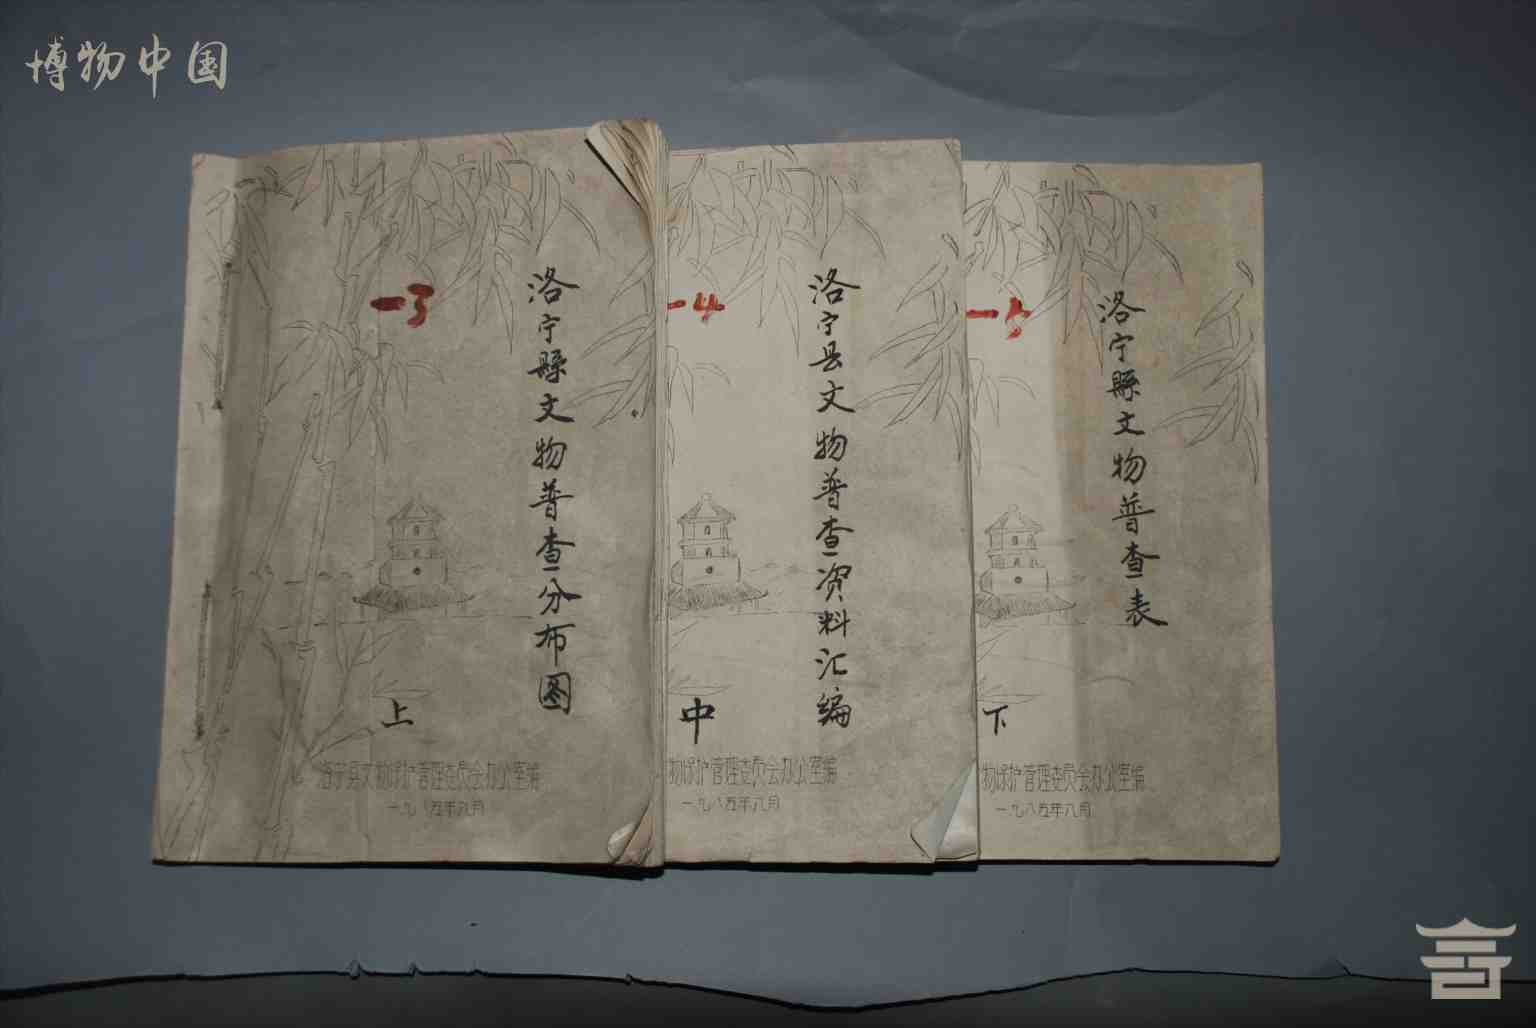 博物中国
一3
洛宁縣文物普查分布图
上
洛宁县文物保护管理委员会办公室编
一九八五年八月
一4
洛宁县文物普查资料汇编
中
物保护管理委员会办公室编
一九八五年八月
一5
洛宁縣文物普查表
下
物保护管理委员会办公室编
一九八五年八月